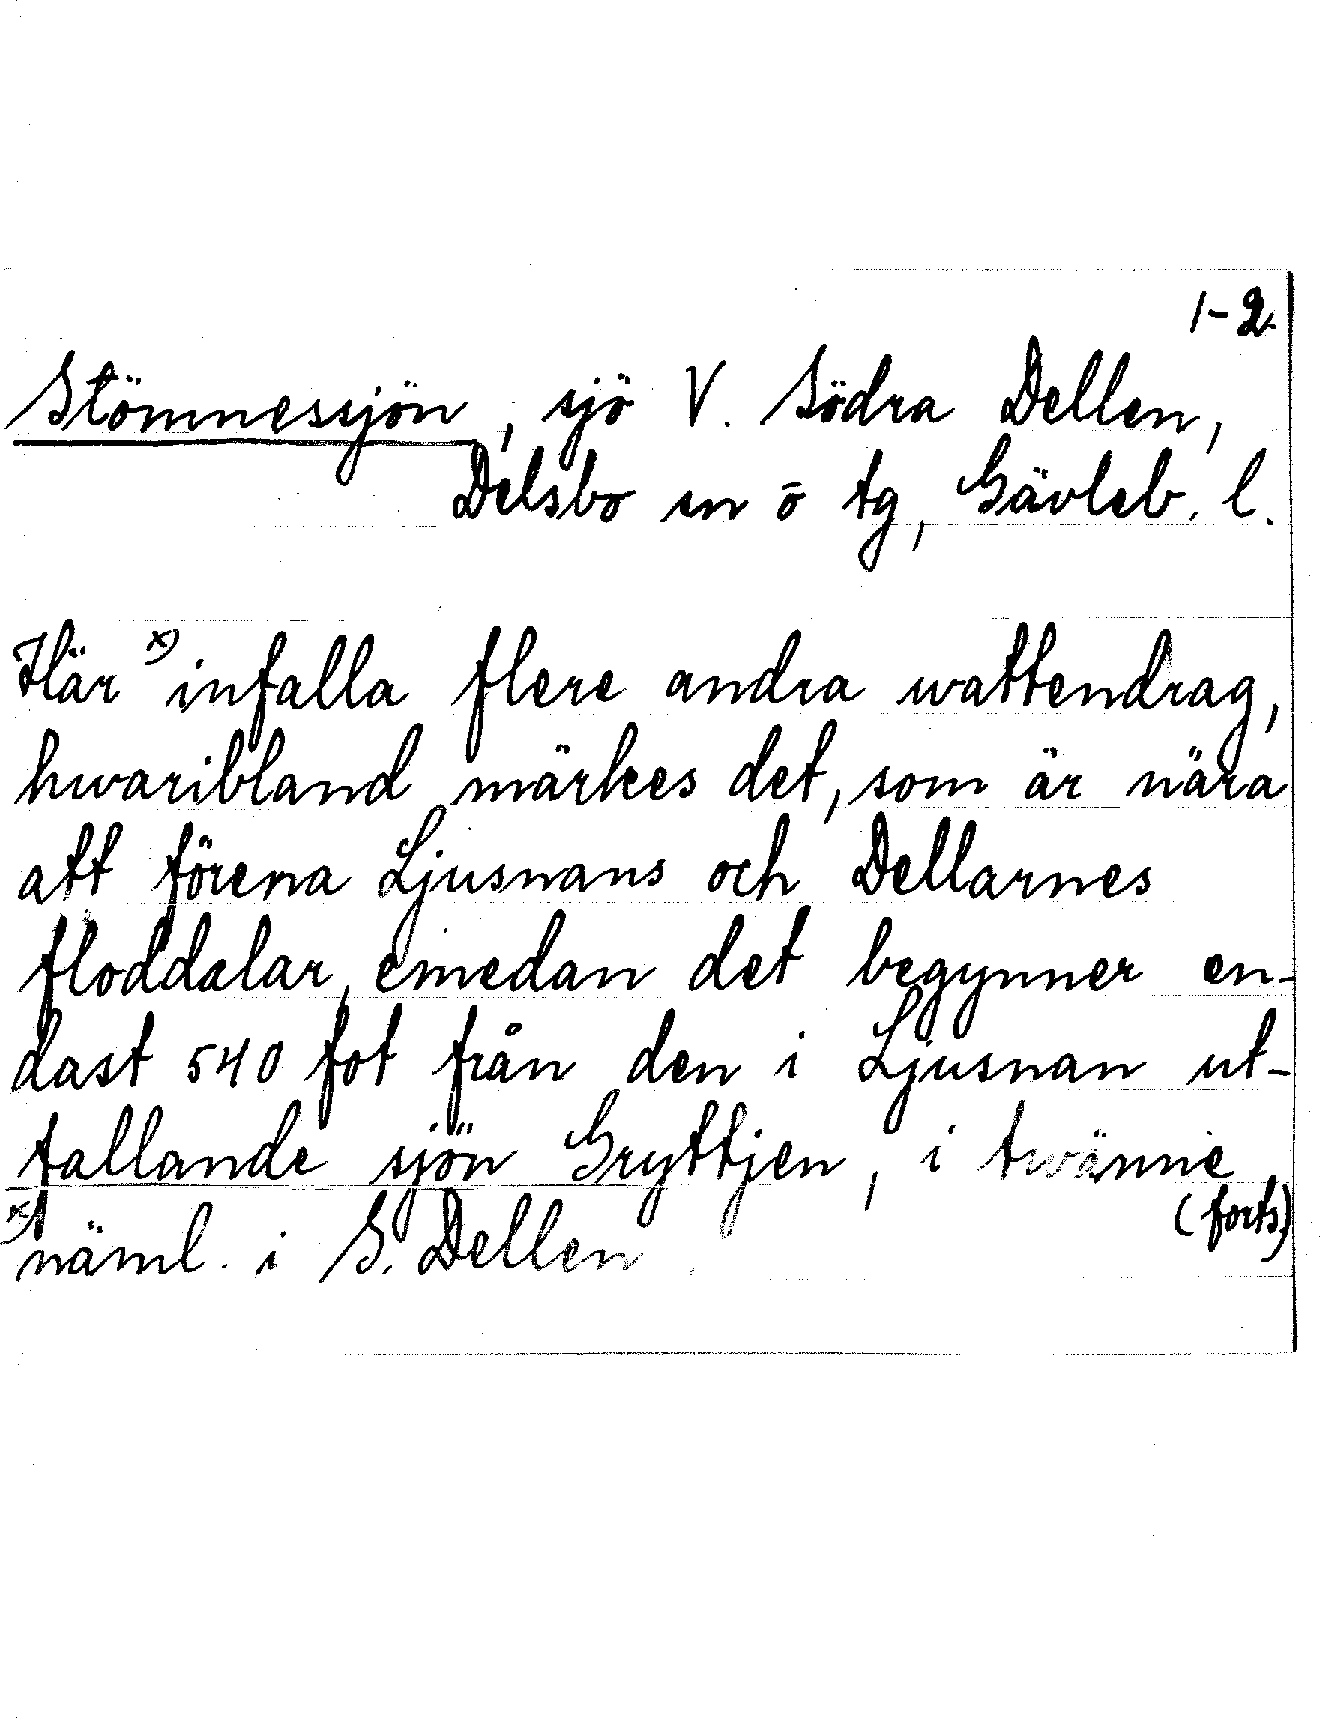 1-2
Stömnessjön, sjö V. Södra Dellen,
Delsbo sn o tg, Gävleb. l.
Här x) infalla flere andra wattendrag,
hwaribland märkes det, som är nära
att förena Ljusnans och Dellarnes
floddalar, emedan det begynner en-
dast 540 fot från den i Ljusnan ut-
fallande sjön Gryttjen, i twänne
(forts)
x) näml. i S. Dellen